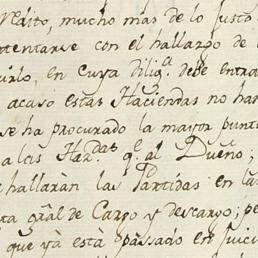 Redito, mucho mas de lo justo
otentarse con el hallazgo de
uirlo, en cuya dilig.ª debe entra
acaso estas Haciendas no han
se ha procurado la mayor punt
a las Haz.das q.e al Dueño;
hallaràn las Partidas en la
ra gral de Cargo y descargo; pe
que yà està passado en juici